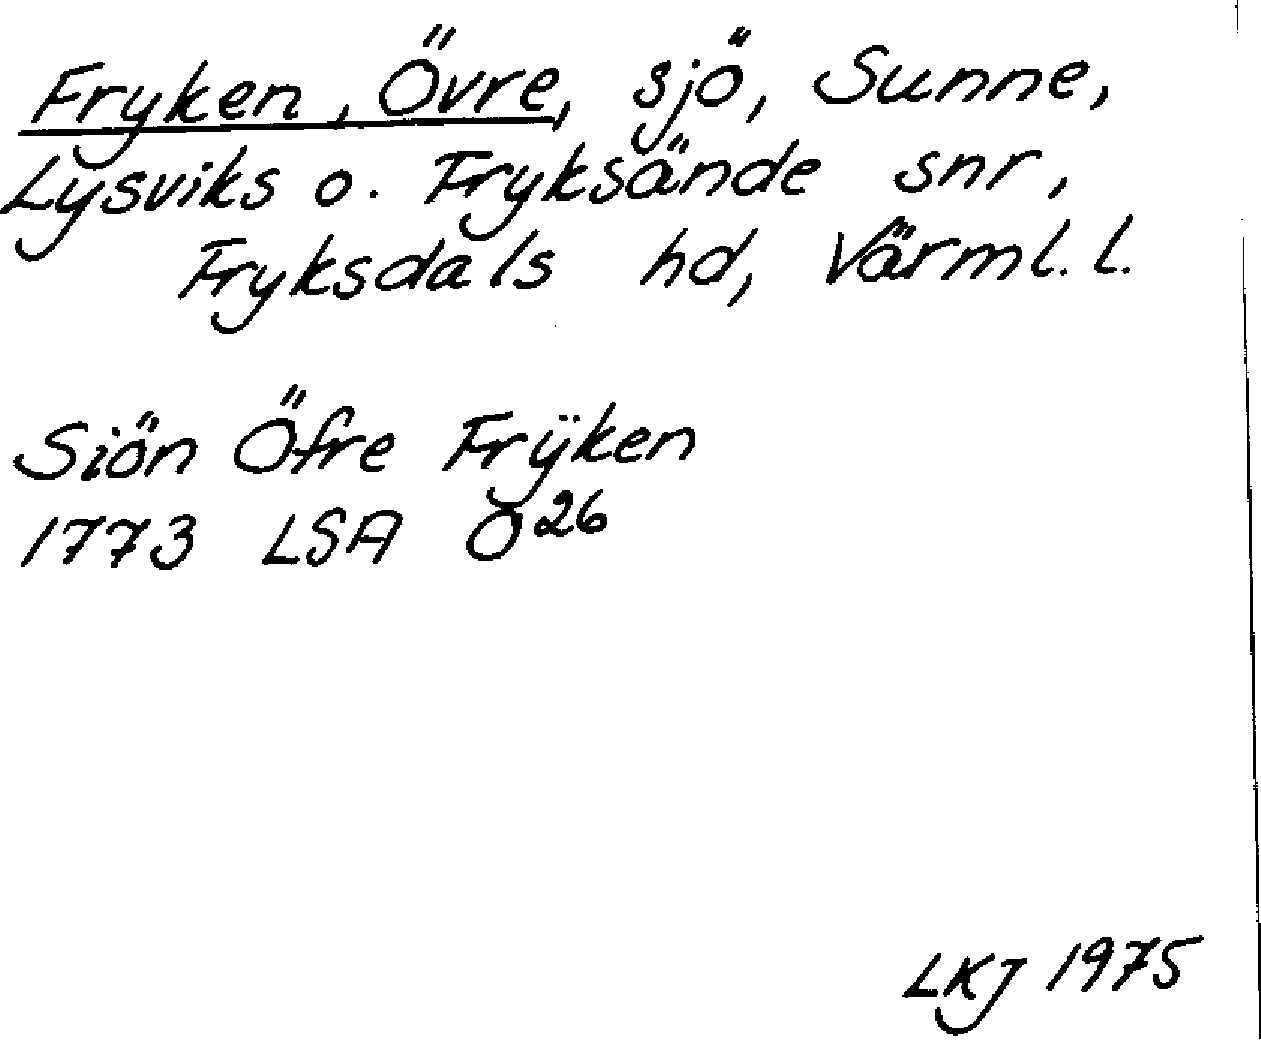 Fryken, Övre, sjö, Sunne,
Lysviks o. Fryksände snr,
Fryksdals hd, Värml. l.
Siön Öfre Frÿken
1773 LSA O26
LKJ 1975